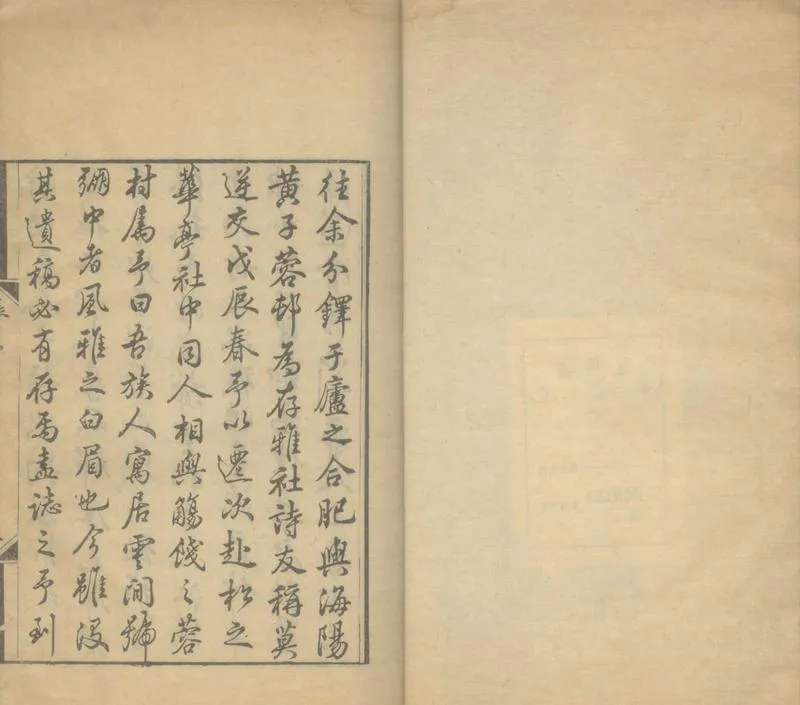 往余分鐸于廬之合肥與海陽
黃子蓉邨為存雅社詩友稱莫
逆交戊辰春予以遷次赴松之
華亭社中同人相與觴餞之蓉
村属予曰吾族人寓居雲間號
弸中者風雅之白眉也今雖沒
其遺稿必有存焉盍誌之予到